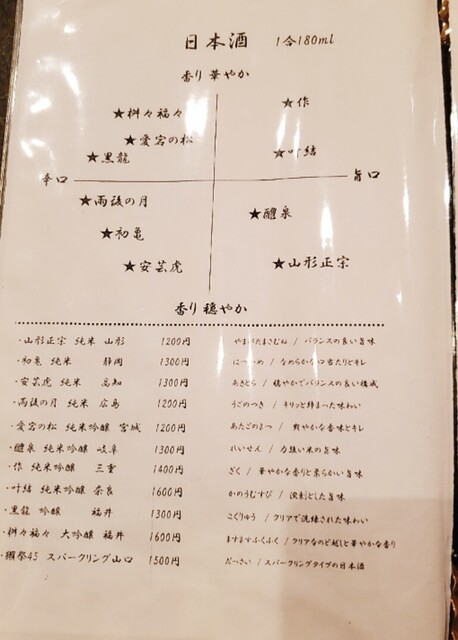 日本酒 1合180ml
香り華やか
★作
★桝々福々
★愛宕の松
★叶結
★黒龍
辛口 旨口
★雨後の月
★醴泉
★初亀
★安芸虎
★山形正宗
香り穏やか
・山形正宗 純米 山形 1200円 やまがたまさむね / バランスの良い旨味
・初亀 純米 静岡 1300円 はつかめ / なめらかな口当たりとキレ
・安芸虎 純米 高知 1300円 あきとら / 穏やかでバランスの良い構成
・雨後の月 純米 広島 1200円 うごのつき / キリッと締まった味わい
・愛宕の松 純米吟醸 宮城 1200円 あたごのまつ / 爽やかな香味とキレ
・醴泉 純米吟醸 岐阜 1300円 れいせん / 力強い米の旨味
・作 純米吟醸 三重 1400円 ざく / 華やかな香りと柔らかい旨味
・叶結 純米吟醸 奈良 1600円 かのうむすび / 溌剌とした旨味
・黒龍 吟醸 福井 1300円 こくりゅう / クリアで洗練された味わい
・桝々福々 大吟醸 福井 1600円 ますますふくふく / クリアなのど越しと華やかな香り
・獺祭45 スパークリング山口 1500円 だっさい / スパークリングタイプの日本酒